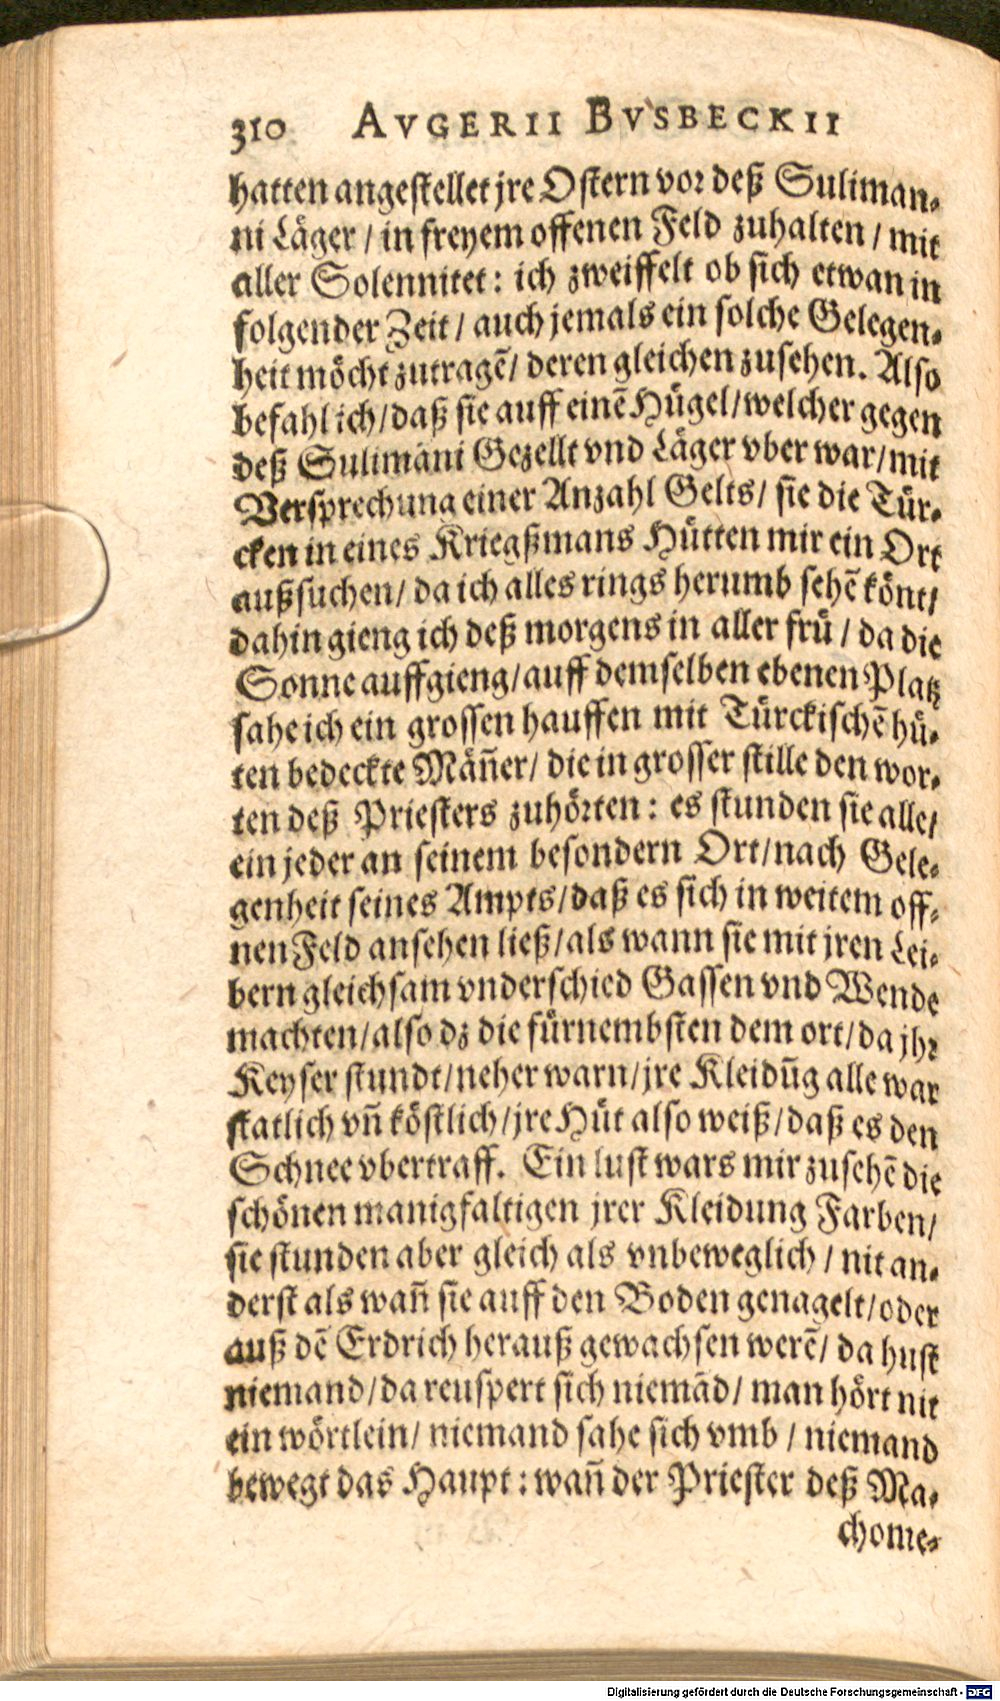 310 AVGERII BVSBECKII
hatten angestellet jre Ostern vor deß Suliman-
ni Läger / in freyem offenen Feld zuhalten / mit
aller Solennitet: ich zweiffelt ob sich etwan in
folgender Zeit / auch jemals ein solche Gelegen-
heit möcht zutragẽ / deren gleichen zusehen. Also
befahl ich / daß sie auff einẽ Hügel / welcher gegen
deß Sulimani Gezellt vnd Läger vber war / mit
Versprechung einer Anzahl Gelts / sie die Tür-
cken in eines Kriegßmans Hütten mir ein Ort
außsuchen / da ich alles rings herumb sehẽ könt /
dahin gieng ich deß morgens in aller frü / da die
Sonne auffgieng / auff demselben ebenen Platz
sahe ich ein grossen hauffen mit Türckischẽ hü-
ten bedeckte Mäñer / die in grosser stille den wor-
ten deß Priesters zuhörten: es stunden sie alle /
ein jeder an seinem besondern Ort / nach Gele-
genheit seines Ampts / daß es sich in weitem off-
nen Feld ansehen ließ / als wann sie mit jren Lei-
bern gleichsam vnderschied Gassen vnd Wende
machten / also dz die fürnembsten dem ort / da jhr
Keyser stundt / neher warn / jre Kleidũg alle war
statlich vñ köstlich / jre Hüt also weiß / daß es den
Schnee vbertraff. Ein lust wars mir zusehẽ die
schönen manigfaltigen jrer Kleidung Farben /
sie stunden aber gleich als vnbeweglich / nit an-
derst als wañ sie auff den Boden genagelt / oder
auß dẽ Erdrich herauß gewachsen werẽ / da hust
niemand / da reuspert sich niemãd / man hört nit
ein wörtlein / niemand sahe sich vmb / niemand
bewegt das Haupt: wañ der Priester deß Ma-
chome-
Digitalisierung gefördert durch die Deutsche Forschungsgemeinschaft - DFG